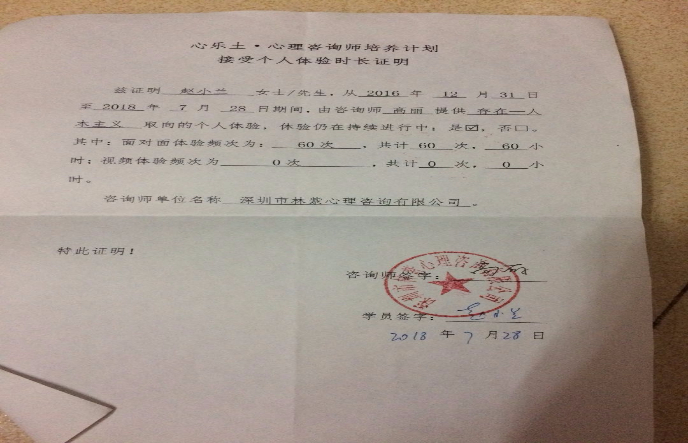 心乐土·心理咨询师培养计划
接受个人体验时长证明
兹证明 赵小兰 女士/先生，从 2016 年 12 月 31 日
至 2018 年 7 月 28 日期间，由咨询师 高丽 提供 存在一人
本主义 取向的个人体验，体验仍在持续进行中：是☑，否☐。
其中：面对面体验频次为： 60 次 ，共计 60 次， 60 小
时；视频体验频次为 0 次 ，共计 0 次， 0 小
时。
咨询师单位名称 深圳市林紫心理咨询有限公司 。
特此证明！
咨询师签字：
学员签字：
2018 年 7 月 28 日